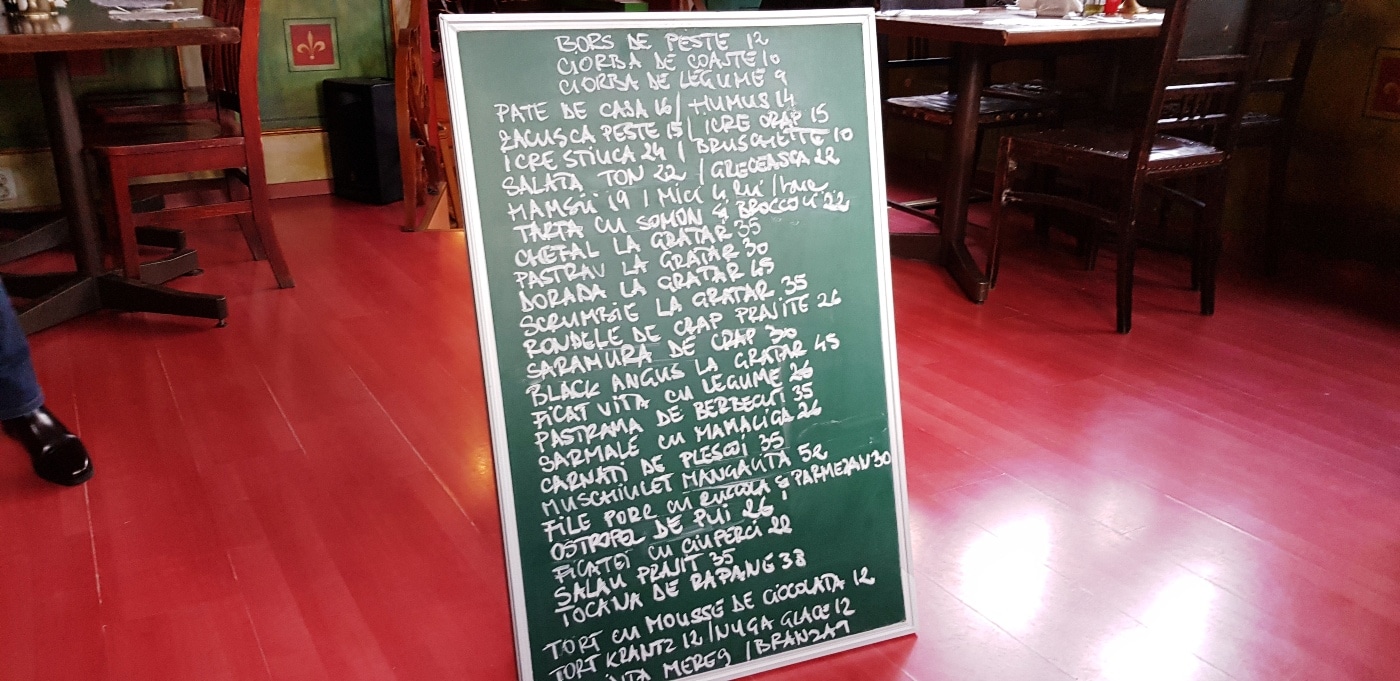 BORS DE PESTE 12
CIORBA DE COASTE 10
CIORBA DE LEGUME 9
PATE DE CASA 16 / HUMUS 14
ZACUSCA PESTE 15 / ICRE CRAP 15
ICRE STIUCA 24 / BRUSCHETTE 10
SALATA TON 22 / GRECEASCA 22
HAMSII 19 / MICI
TARTA CU SOMON & BROCCOLI 22
CHEFAL LA GRATAR 35
PASTRAV LA GRATAR 30
DORADA LA GRATAR 45
SCRUMBIE LA GRATAR 35
RONDELE DE CRAP PRAJITE 26
SARAMURA DE CRAP 30
BLACK ANGUS LA GRATAR 45
FICAT VITA CU LEGUME 26
PASTRAMA DE BERBECUT 35
SARMALE CU MAMALIGA 26
CARNATI DE PLESCOI 35
MUSCHIULET MANGALITA 52
FILE PORC CU RUCCOLA & PARMEZAN 30
OSTROPEL DE PUI 26
FICATEI CU CIUPERCI 22
SALAU PRAJIT 35
TOCANA DE RAPANE 38
TORT CU MOUSSE DE CIOCOLATA 12
TORT KRANTZ 12 / NUGA GLACE 12
MERE 9 / BRANZA 9